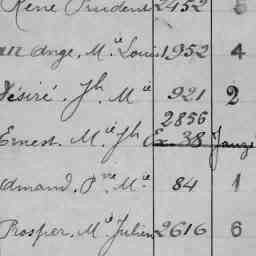 René Prudent 2452 5
Ange. M.ie Louis 1952 4
Désiré. Jh. M.ie 921 2
2856
Ernest. M.ie Jh Ex. 38 Janzé
Amand. P.re M.ie 84 1
Prosper. M.ie Julien 2616 6